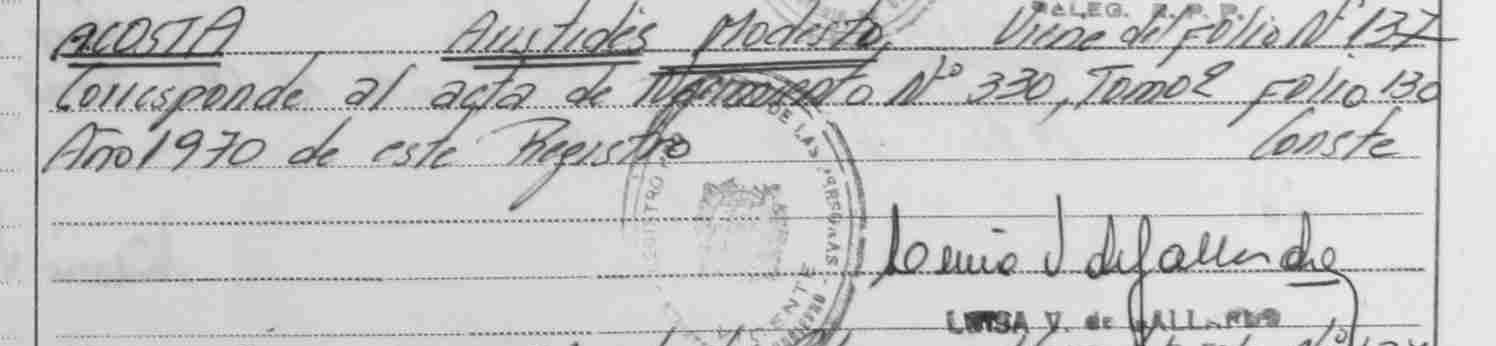 DALEG. R. P. P.
ACOSTA Aristides Modesto, Viene del folio Nº 137
Corresponde al acta de Nacimiento Nº 330, Tomo 2 folio 130
Año 1970 de este Registro Conste
REGISTRO DE LAS PERSONAS
LUISA V. de GALLARDO